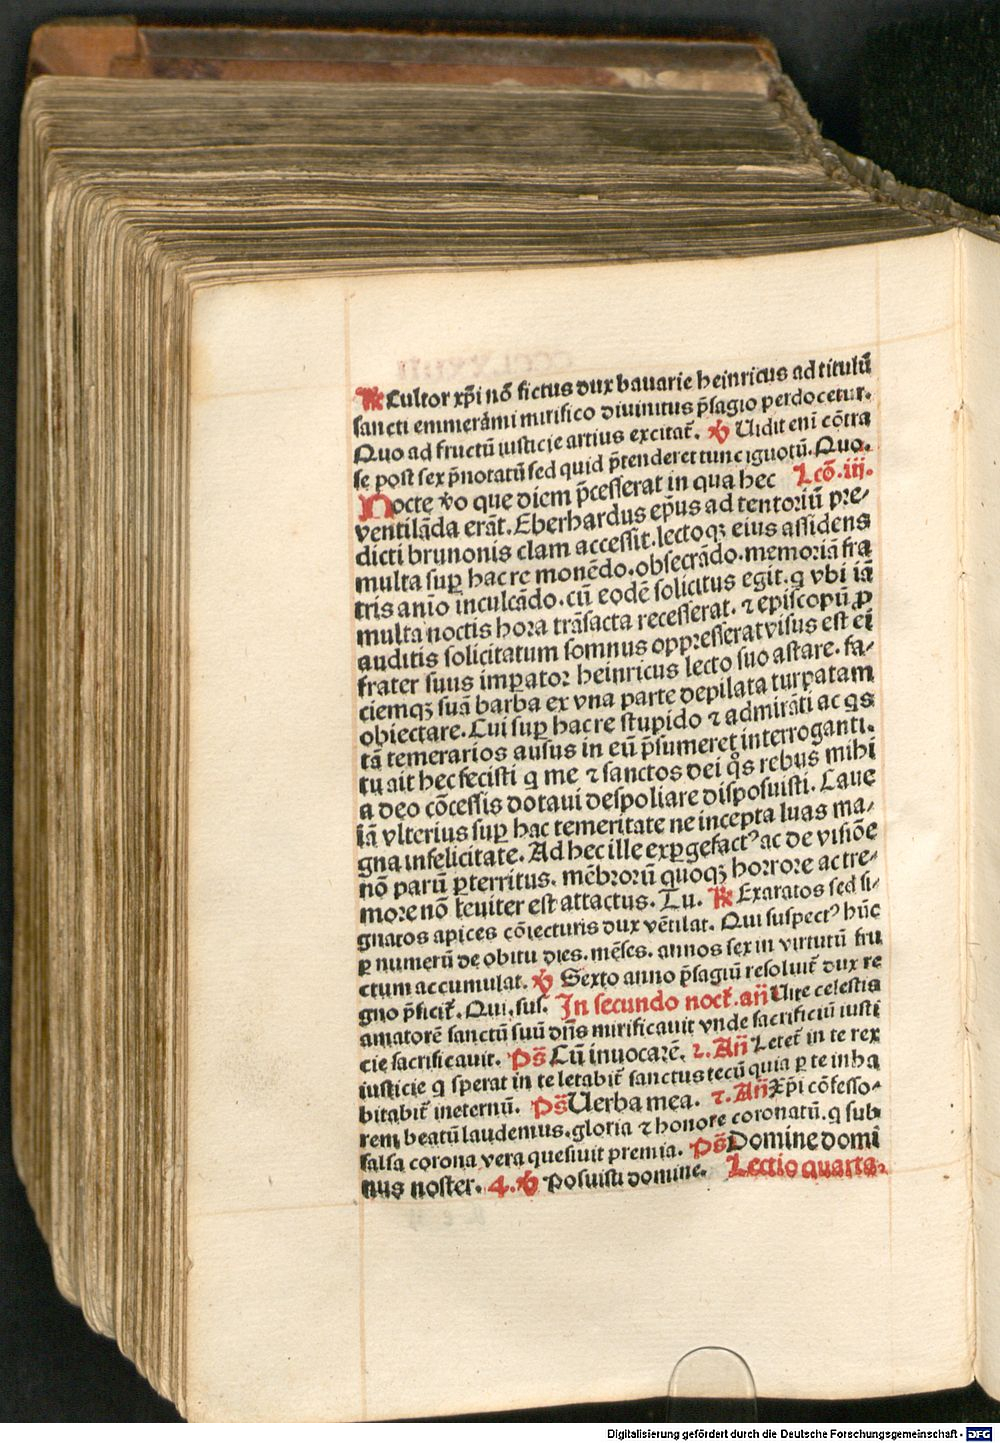 ℟ Cultor xp̄i nō fictus dux bavarie heinricus ad titulū
sancti emmerāmi mirifico divinitus p̄sagio perdocetur.
Quo ad fructū iusticie artius excitat̄. ℣ Uidit eni cōtra
se post sex p̄notatū sed quid p̄tenderet tunc ignotū. Quo.
Lcō. iij.
Nocte v̄o que diem p̄cesserat in qua hec
ventilāda erāt. Eberhardus ep̄us ad tentoriū pre-
dicti brunonis clam accessit. lectoqꝫ eius assidens
multa sup̱ hac re monēdo. obsecrādo. memoriā fra
tris anīo inculcādo. cū eodē solicitus egit. q vbi iā
multa noctis hora trāsacta recesserat. ⁊ episcopū ꝓ
auditis solicitatum somnus oppresserat visus est ei
frater suus imꝑator heinricus lecto suo astare. fa-
ciemqꝫ suā barba ex vna parte depilata turpatam
obiectare. Cui suꝑ hac re stupido ⁊ admirāti ac qs
tā temerarios ausus in eū p̄sumeret interroganti.
tu ait hec fecisti q me ⁊ sanctos dei qͦs rebus mihi
a deo cōcessis dotaui despoliare disposuisti. Caue
iā vlterius suꝑ hac temeritate ne incepta luas ma-
gna infelicitate. Ad hec ille exꝑgefactꝰ ac de visiōe
nō parū ꝑterritus. mēbrorū quoqꝫ horrore ac tre-
more nō leuiter est attactus. Tu. ℟ Exaratos sed si-
gnatos apices cōiecturis dux vētilat. Qui suspectꝰ hūc
ꝑ numerū de obitu dies. mēses. annos sex in virtutū fru
ctum accumulat. ℣ Sexto anno p̄sagiū resoluit̄ dux re
gno p̄ficit̄. Qui. sus. In secundo noct̄. an̄ Uite celestis
amatorē sanctū suū dn̄s mirificauit vnde sacrificiū iusti
cie sacrificauit. Ps̄ Cū inuocarē. 2. An̄ Letet̄ in te rex
iusticie q sperat in te letabit̄ sanctus tecū quia ꝑ te inha
bitabit̄ ineternū. Ps̄ Uerba mea. ⁊. An̄ Xp̄i cōfesso-
rem beatū laudemus. gloria ⁊ honore coronatū. q sub
falsa corona vera quesiuit premia. Ps̄ Domine domi
nus noster. 4. ℣ Posuisti domine. Lectio quarta.
Digitalisierung gefördert durch die Deutsche Forschungsgemeinschaft - DFG